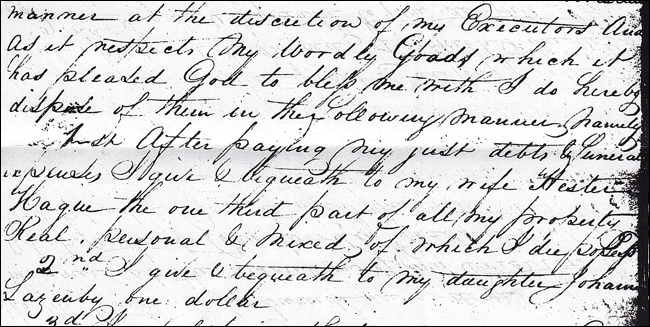 manner at the discretion of my Executors And
As it respects My Wordly Goods which it
has pleased God to bless me with I do hereby
dispose of them in the following manner, namely
1st After paying my just debts & funeral
expenses I give & bequeath to my wife Hester
Hague the one third part of all my property
Real, personal & Mixed, of which I die possess
2nd I give & bequeath to my daughter Johann
Lazenby one dollar
3d I